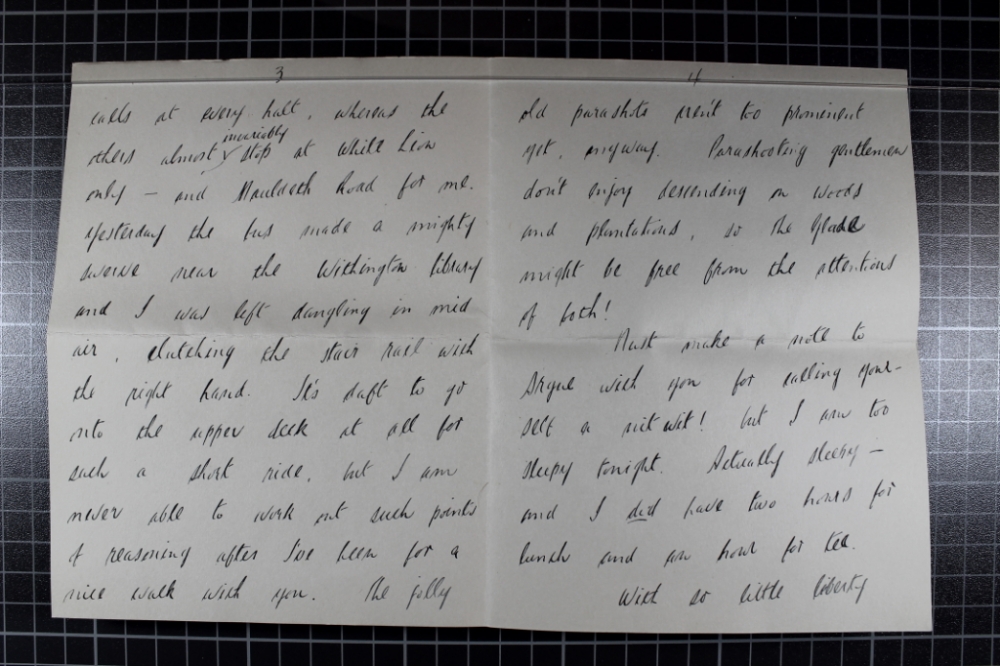 3
calls at every halt, whereas the
invariably
others almost stop at White Lion
only — and Mauldeth Road for me.
Yesterday the bus made a mighty
swerve near the Withington library
and I was left dangling in mid
air, clutching the stair rail with
the right hand. It's daft to go
onto the upper deck at all for
such a short ride, but I am
never able to work out such points
of reasoning after I've been for a
nice walk with you. The jolly
4
old parashots aren't too prominent
yet, anyway. Parashooting gentlemen
don't enjoy descending on woods
and plantations, so the Glade
might be free from the attentions
of both!
Must make a note to
Argue with you for calling your-
self a nit wit! but I am too
sleepy tonight. Actually sleepy —
and I did have two hours for
lunch and an hour for tea.
With so little liberty